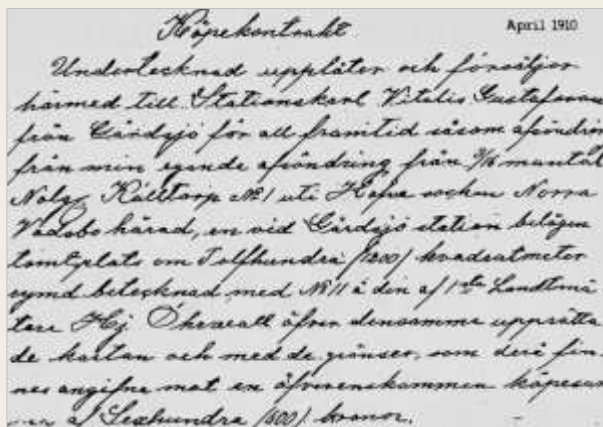 Köpekontrakt
April 1910
Undertecknad upplåter och försäljer
härmed till Stationskarl Vitalis Gustafsson
från Gårdsjö för all framtid såsom afsöndring
från min egande afsöndring från mantal
Källtorp No 1 uti socken Norra
Vadsbo härad, en vid Gårdsjö station belägen
tomtplats om Tolfhundra /1200/ kvadratmeter
rymd betecknad med No 11 å den af 1ste Landtmä
tare Hj. öfver densamma upprätta
de kartan och med de gränser, som derå fin-
nes angifna mot en öfverenskommen köpesum
af Sexhundra /600/ kronor.